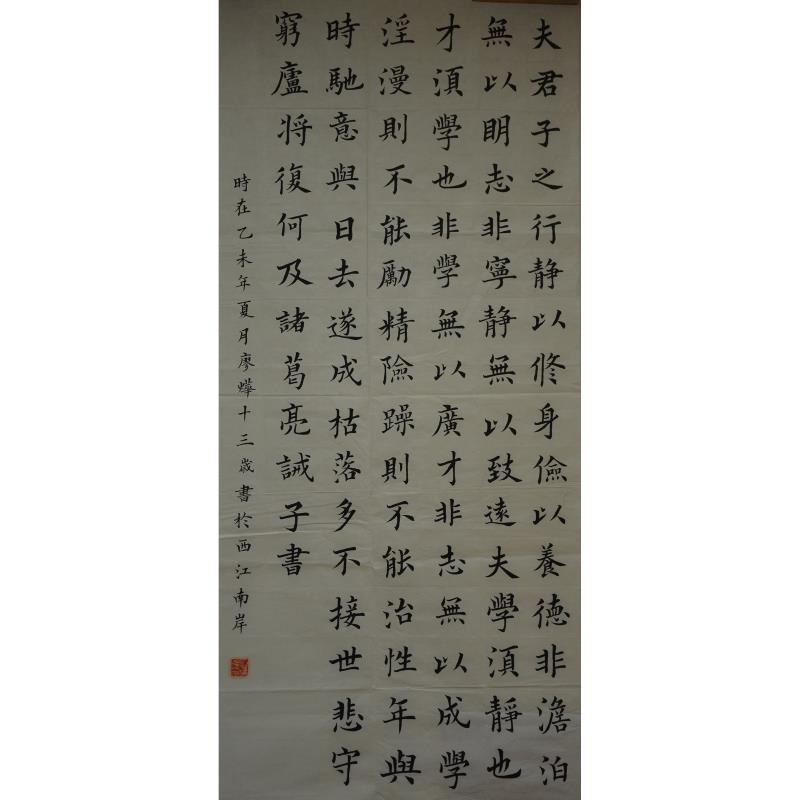 夫君子之行静以修身儉以養德非澹泊
無以明志非寧静無以致遠夫學湏静也
才湏學也非學無以廣才非志無以成學
淫漫則不能勵精險躁則不能治性年與
時馳意與日去遂成枯落多不接世悲守
窮廬将復何及諸葛亮誡子書
時在乙未年夏月廖十三歲書於西江南岸